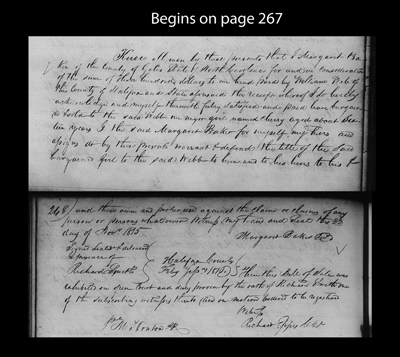 Begins on page 267
Know all men by these presents that I Margaret Ba
ker of the County of Gates State of North Carolina for and in consideration
of the sum of three hundred dollars to me in hand paid by William Webb of
the County of Halifax and State aforesaid the receipt whereof I do hereby
acknowledge and myself therewith fully satisfied and paid have bargained
to the said Webb one negro girl named aged about
teen years I the said Margaret Baker for myself my heirs and
assigns do by these presents warrant & defend the title of the said
bargained girl to the said Webb to him and to his heirs to his &
268) and their own and proper use against the claim or claims of any
person or persons whatsoever Witness my hand and Seal this
day of Novr. 1815
Margaret Baker
Signed Sealed & delivered
In presence of
Richard
Halifax County
Feby 1816
Then this Bill of Sale was
exhibited in open Court and duly proven by the oath of Richard
of the subscribing witness thereto and on motion ordered to be registered
Witness
Richard